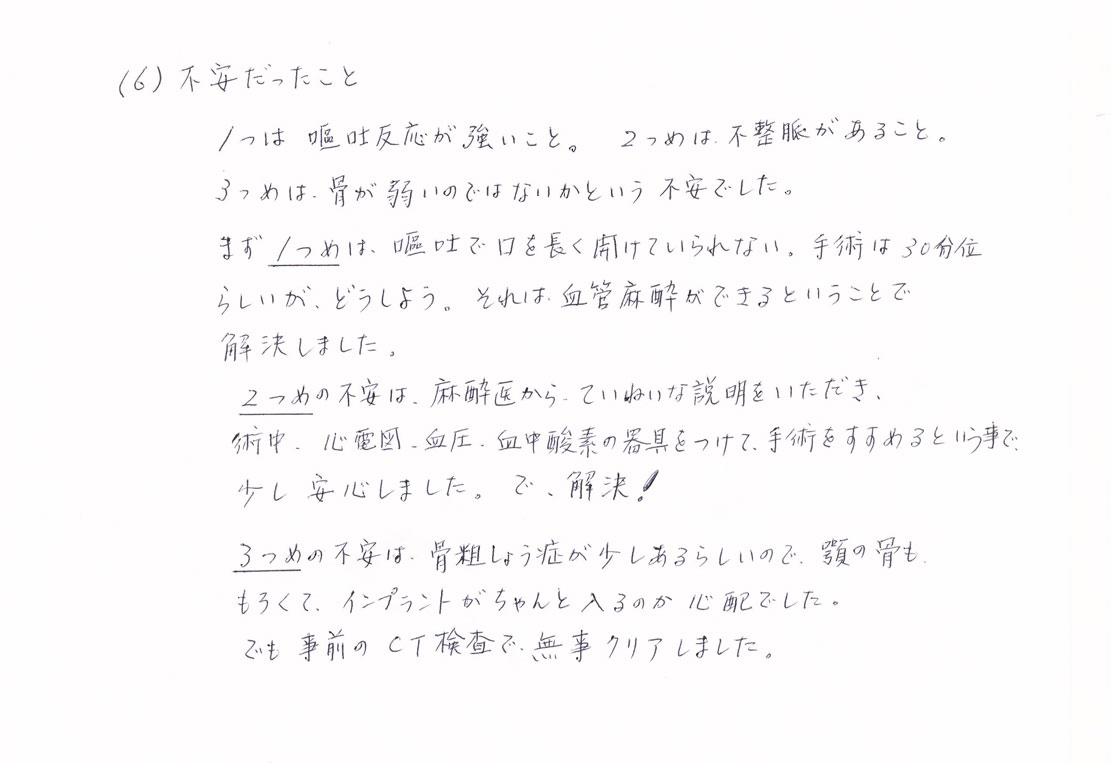 (6) 不安だったこと
1つは 嘔吐反応が強いこと。 2つめは、不整脈があること。
3つめは、骨が弱いのではないかという 不安でした。
まず 1つめは、嘔吐で口を長く開けていられない。手術は30分位
らしいが、どうしよう。それは、血管麻酔ができるということで
解決しました。
2つめの不安は、麻酔医から、ていねいな説明をいただき、
術中、心電図、血圧、血中酸素の器具をつけて、手術をすすめるという事で、
少し 安心しました。で、解決!
3つめの不安は、骨粗しょう症が少しあるらしいので、顎の骨も、
もろくて、インプラントがちゃんと入るのか 心配でした。
でも 事前のCT検査で、無事クリアしました。